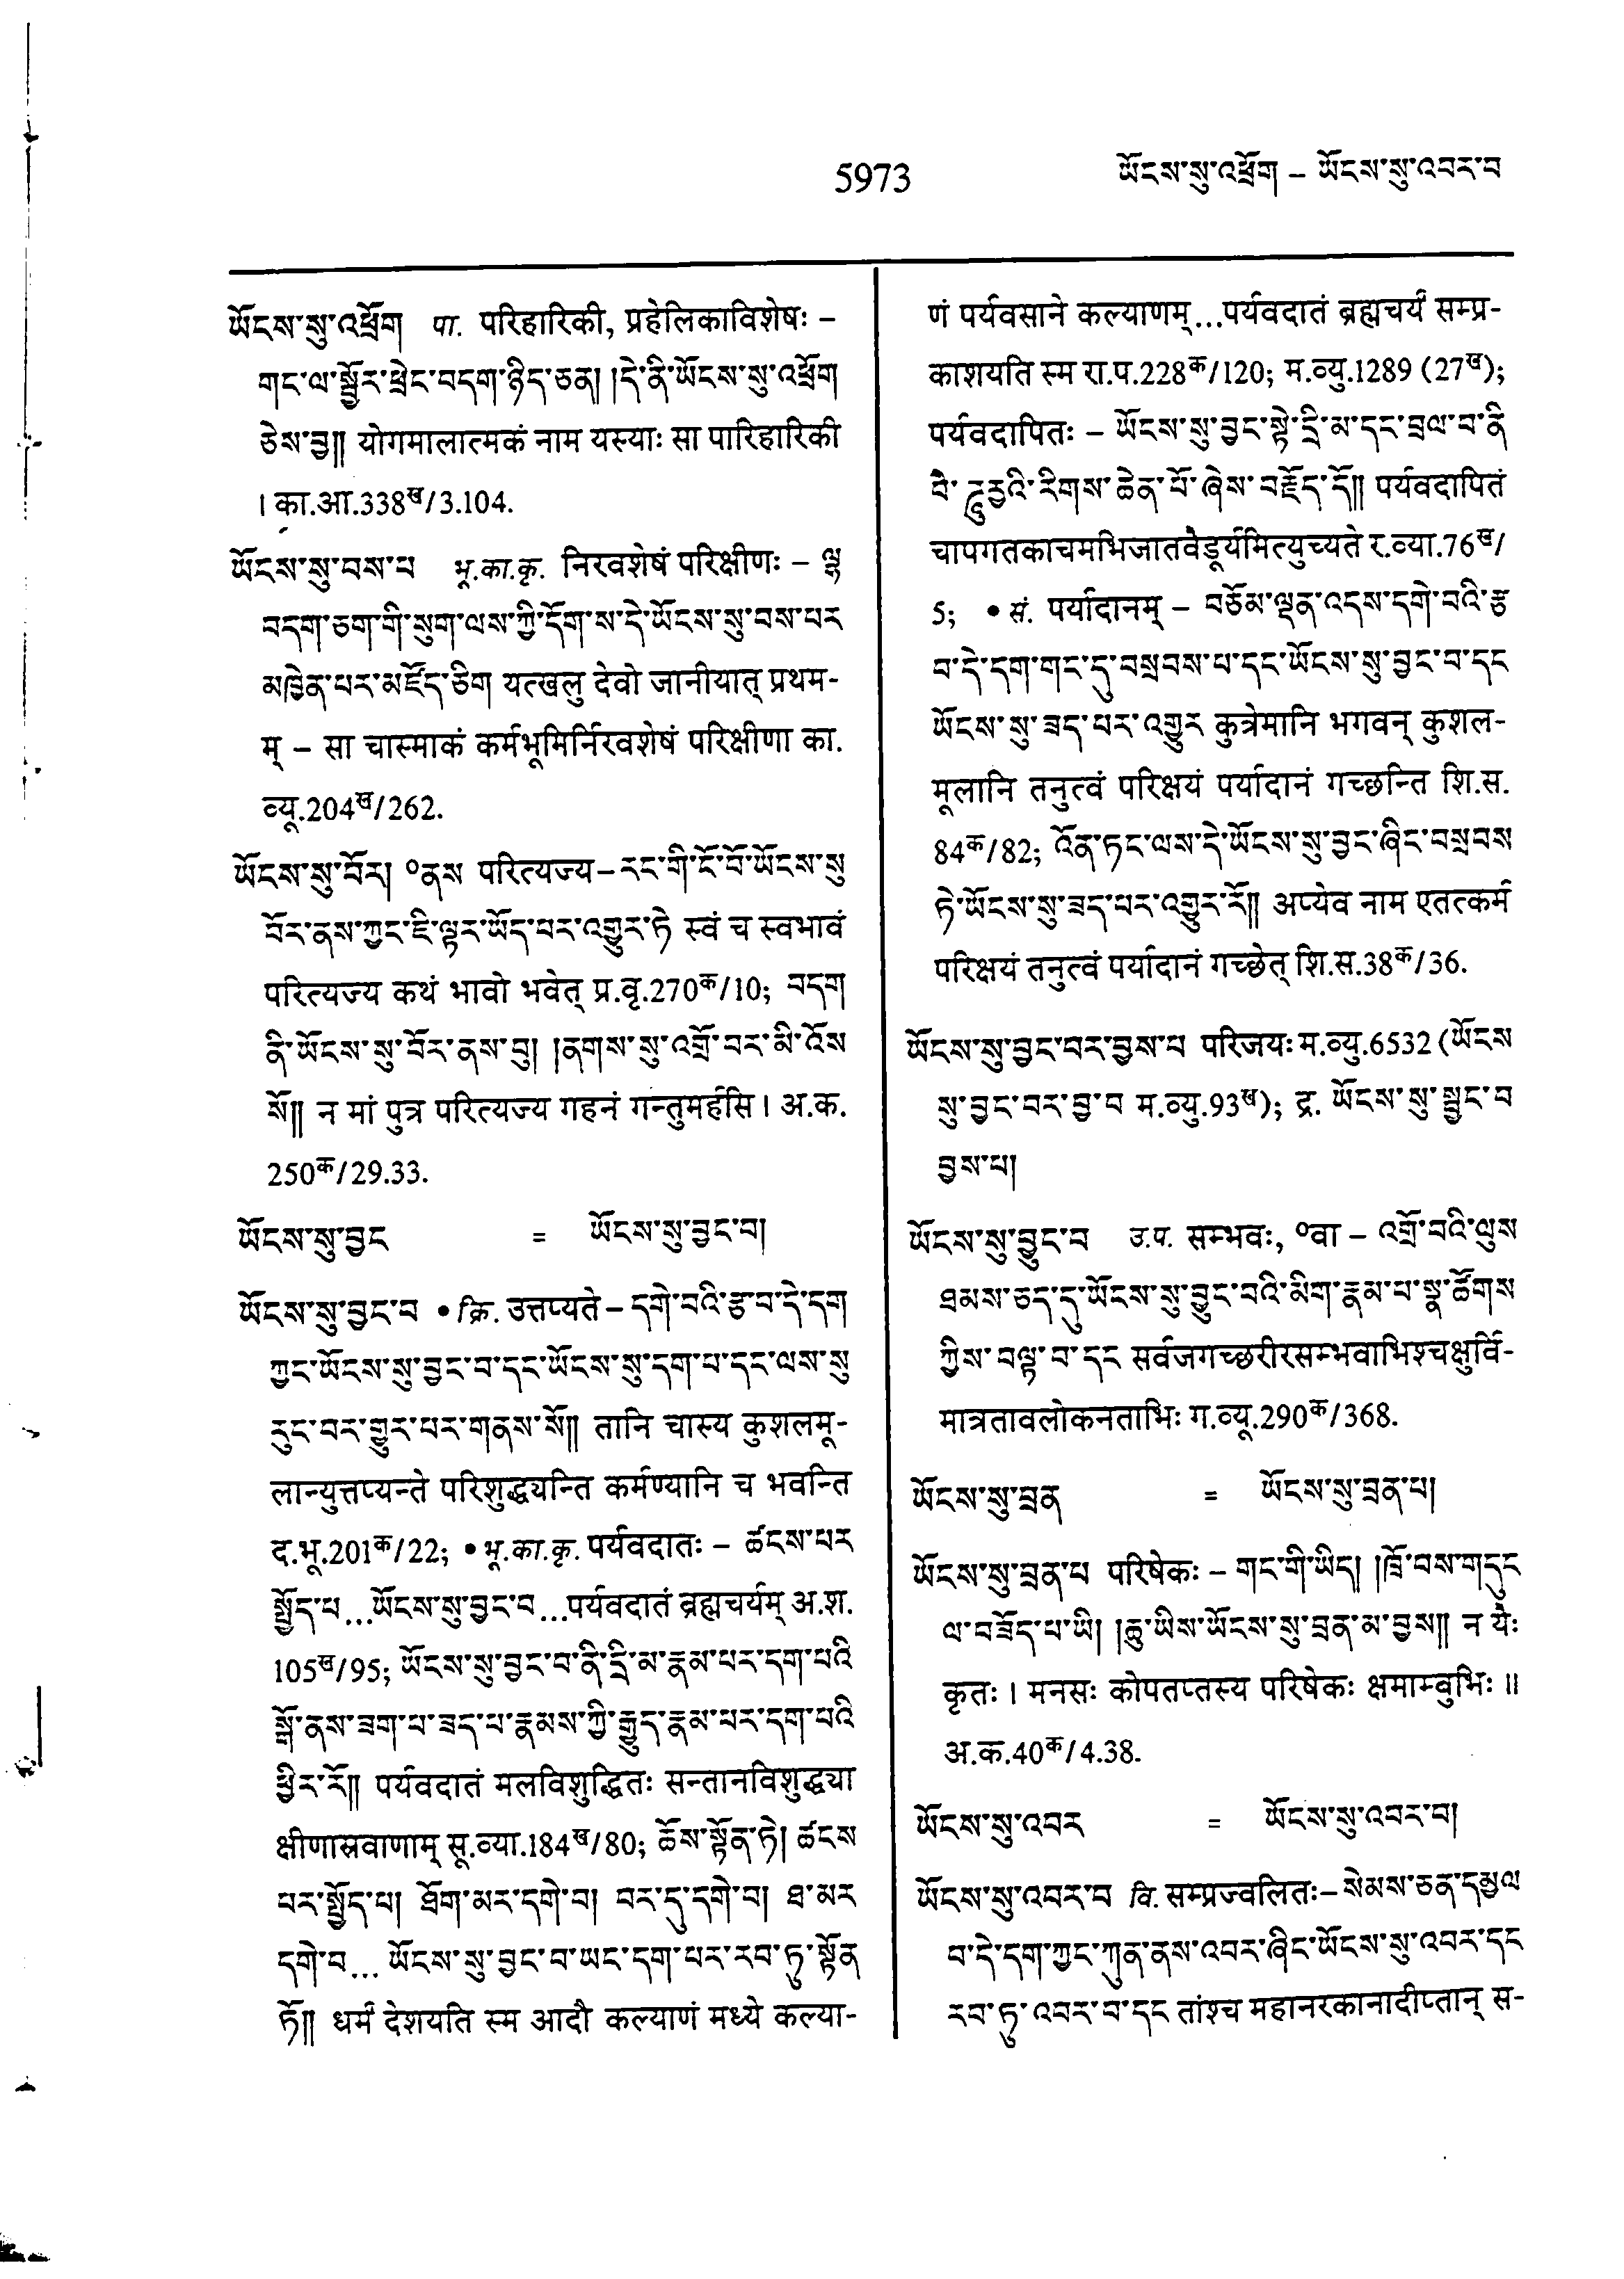 5973
ཡོངས་སུ་འཕྲོག – ཡོངས་སུ་འབར་བ
ཡོངས་སུ་འཕྲོག पा. परिहारिकी, प्रहेलिकाविशेषः –
གང་ལ་སྦྱོར་ཕྲེང་བདག་ཉིད་ཅན། །དེ་ནི་ཡོངས་སུ་འཕྲོག
ཅེས་བྱ༎ योगमालात्मकं नाम यस्याः सा पारिहारिकी
। का.आ.338ख/3.104.
ཡོངས་སུ་བས་པ भू.का.कृ. निरवशेषं परिक्षीणः – ལྷ
བདག་ཅག་གི་སུག་ལས་ཀྱི་དོག་ས་དེ་ཡོངས་སུ་བས་པར
མཁྱེན་པར་མཛོད་ཅིག यत्खलु देवो जानीयात् प्रथम-
म् – सा चास्माकं कर्मभूमिर्निरवशेषं परिक्षीणा का.
व्यू.204ख/262.
ཡོངས་སུ་བོར། ॰ནས परित्यज्य – རང་གི་ངོ་བོ་ཡོངས་སུ
བོར་ནས་ཀྱང་ཇི་ལྟར་ཡོད་པར་འགྱུར་ཏེ स्वं च स्वभावं
परित्यज्य कथं भावो भवेत् प्र.वृ.270क/10; བདག
ནི་ཡོངས་སུ་བོར་ནས་བུ། །ནགས་སུ་འགྲོ་བར་མི་འོས
སོ༎ न मां पुत्र परित्यज्य गहनं गन्तुमर्हसि। अ.क.
250क/29.33.
ཡོངས་སུ་བྱང = ཡོངས་སུ་བྱང་བ།
ཡོངས་སུ་བྱང་བ • क्रि. उत्तप्यते – དགེ་བའི་རྩ་བ་དེ་དག
ཀྱང་ཡོངས་སུ་བྱང་བ་དང་ཡོངས་སུ་དག་པ་དང་ལས་སུ
རུང་བར་གྱུར་པར་གནས་སོ༎ तानि चास्य कुशलमू-
लान्युत्तप्यन्ते परिशुद्ध्यन्ति कर्मण्यानि च भवन्ति
द.भू.201क/22; • भू.का.कृ. पर्यवदातः – ཚངས་པར
སྤྱོད་པ...ཡོངས་སུ་བྱང་བ...पर्यवदातं ब्रह्मचर्यम् अ.श.
105ख/95; ཡོངས་སུ་བྱང་བ་ནི་དྲི་མ་རྣམ་པར་དག་པའི
སྒོ་ནས་ཟག་པ་ཟད་པ་རྣམས་ཀྱི་རྒྱུད་རྣམ་པར་དག་པའི
ཕྱིར་རོ༎ पर्यवदातं मलविशुद्धितः सन्तानविशुद्ध्या
क्षीणास्रवाणाम् सू.व्या.184ख/80; ཆོས་སྟོན་ཏེ། ཚངས
པར་སྤྱོད་པ། ཐོག་མར་དགེ་བ། བར་དུ་དགེ་བ། ཐ་མར
དགེ་བ... ཡོངས་སུ་བྱང་བ་ཡང་དག་པར་རབ་ཏུ་སྟོན
ཏོ༎ धर्मं देशयति स्म आदौ कल्याणं मध्ये कल्या-
णं पर्यवसाने कल्याणम्...पर्यवदातं ब्रह्मचर्यं सम्प्र-
काशयति स्म रा.प.228क/120; म.व्यु.1289 (27ख);
पर्यवदापितः – ཡོངས་སུ་བྱང་སྟེ་དྲི་མ་དང་བྲལ་བ་ནི
བེ་ཌཱུརྱའི་རིགས་ཆེན་པོ་ཞེས་བརྗོད་དོ༎ पर्यवदापितं
चापगतकाचमभिजातवैडूर्यमित्युच्यते र.व्या.76ख/
5; • सं. पर्यादानम् – བཅོམ་ལྡན་འདས་དགེ་བའི་རྩ
བ་དེ་དག་གང་དུ་བསྲབས་པ་དང་ཡོངས་སུ་བྱང་བ་དང
ཡོངས་སུ་ཟད་པར་འགྱུར कुत्रेमानि भगवन् कुशल-
मूलानि तनुत्वं परिक्षयं पर्यादानं गच्छन्ति शि.स.
84क/82; འོན་ཏང་ལས་དེ་ཡོངས་སུ་བྱང་ཞིང་བསྲབས
ཏེ་ཡོངས་སུ་ཟད་པར་འགྱུར་རོ༎ अप्येव नाम एतत्कर्म
परिक्षयं तनुत्वं पर्यादानं गच्छेत् शि.स.38क/36.
ཡོངས་སུ་བྱང་བར་བྱས་པ परिजयः म.व्यु.6532 (ཡོངས
སུ་བྱང་བར་བྱ་བ म.व्यु.93ख); द्र. ཡོངས་སུ་སྦྱང་བ
བྱས་པ།
ཡོངས་སུ་བྱུང་བ उ.प. सम्भवः, ॰वा – འགྲོ་བའི་ལུས
ཐམས་ཅད་དུ་ཡོངས་སུ་བྱུང་བའི་མིག་རྣམ་པ་སྣ་ཚོགས
ཀྱིས་བལྟ་བ་དང सर्वजगच्छरीरसम्भवाभिश्चक्षुर्वि-
मात्रतावलोकनताभिः ग.व्यू.290क/368.
ཡོངས་སུ་བྲན = ཡོངས་སུ་བྲན་པ།
ཡོངས་སུ་བྲན་པ परिषेकः – གང་གི་ཡིད། །ཁྲོ་བས་གདུང
ལ་བཟོད་པ་ཡི། །ཆུ་ཡིས་ཡོངས་སུ་བྲན་མ་བྱས༎ न यैः
कृतः। मनसः कोपतप्तस्य परिषेकः क्षमाम्बुभिः॥
अ.क.40क/4.38.
ཡོངས་སུ་འབར = ཡོངས་སུ་འབར་བ།
ཡོངས་སུ་འབར་བ वि. सम्प्रज्वलितः – སེམས་ཅན་དམྱལ
བ་དེ་དག་ཀྱང་ཀུན་ནས་འབར་ཞིང་ཡོངས་སུ་འབར་དང
རབ་ཏུ་འབར་བ་དང तांश्च महानरकानादीप्तान् स-